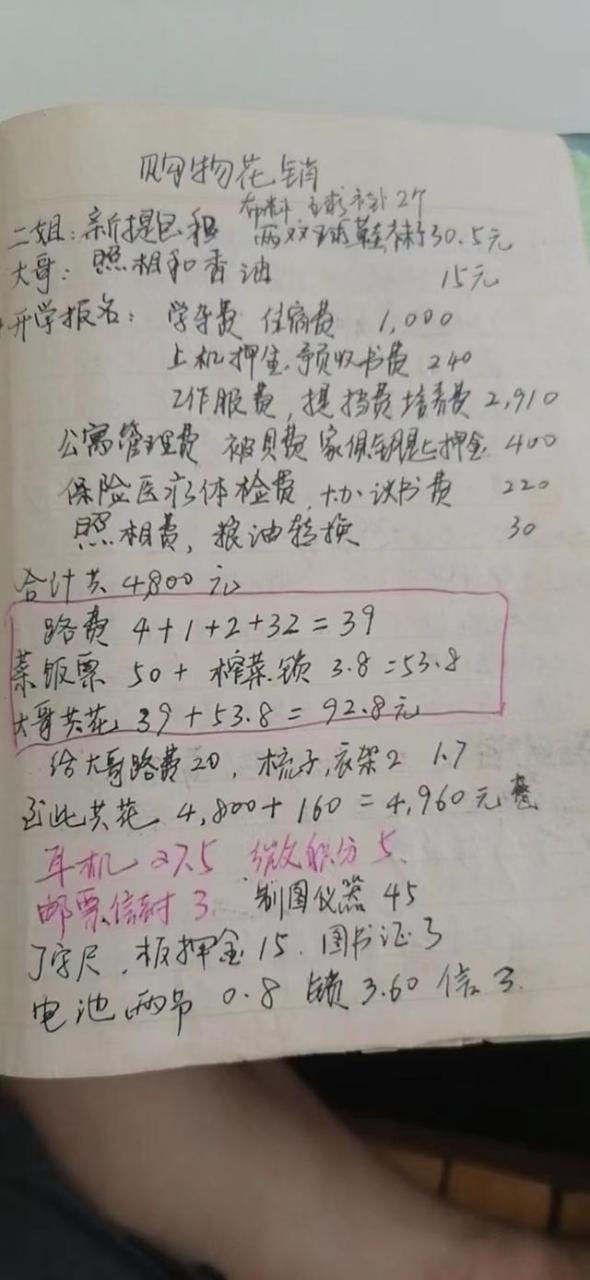 购物花销
布料 2个
二姐：新提包和 两双球鞋 30.5元
大哥：照相和香油 15元
开学报名：学杂费 住宿费 1,000
上机押金，预收书费 240
工作服费，提档费培养费 2,910
公寓管理费 被具费 家俱钥匙押金 400
保险医疗体检费， 议书费 220
照相费，粮油转换 30
合计共 4,800元
路费 4+1+2+32=39
菜饭票 50+ 榨菜锁 3.8=53.8
大哥共花 39+53.8=92.8元
给大哥路费20，梳子，衣架2 1.7
至此共花 4,800+160=4,960元整
耳机 27.5 微积分 5.
邮票信封 3. 制图仪器 45
丁字尺，板押金15. 图书证3
电池两节 0.8 锁 3.60 信 3.